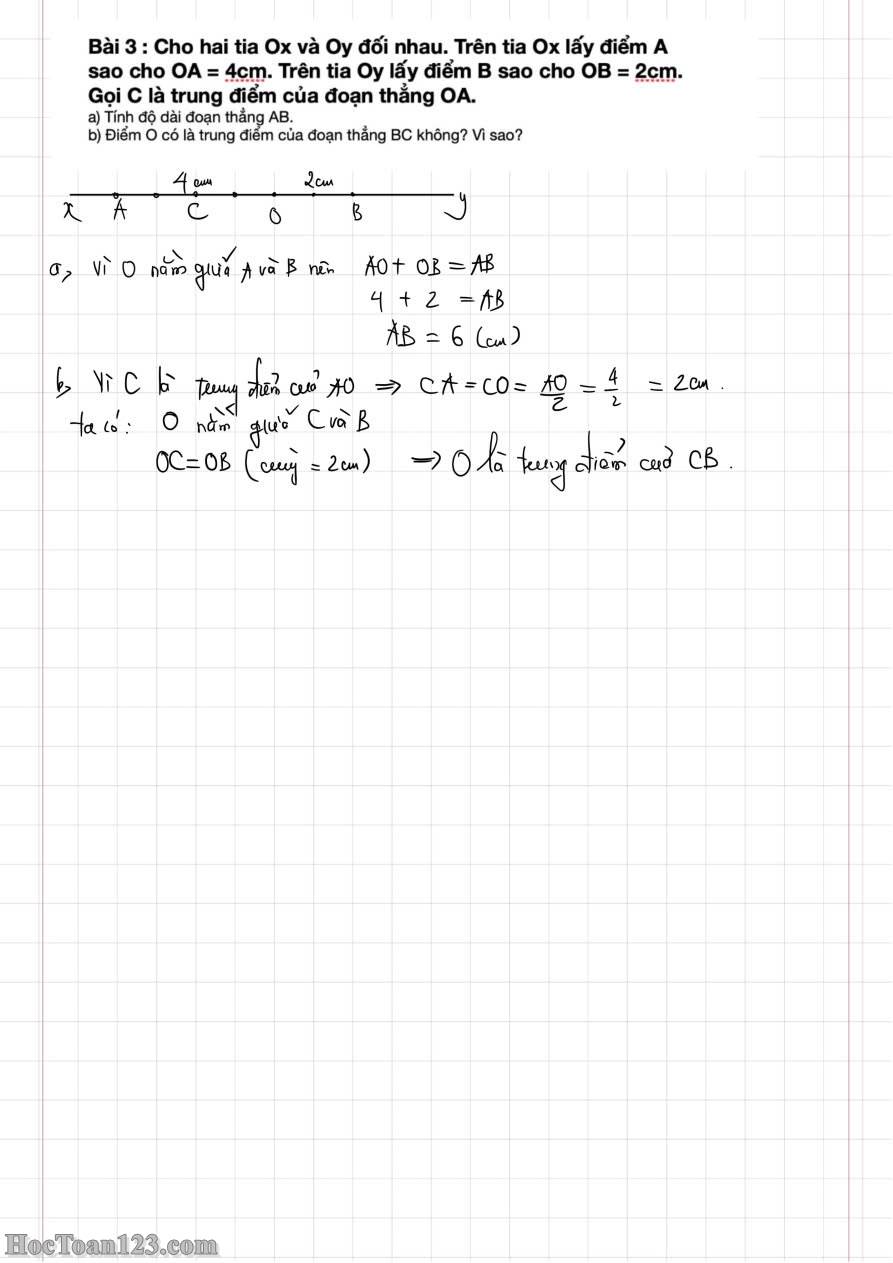 Bài 3 : Cho hai tia Ox và Oy đối nhau. Trên tia Ox lấy điểm A
sao cho OA = 4cm. Trên tia Oy lấy điểm B sao cho OB = 2cm.
Gọi C là trung điểm của đoạn thẳng OA.
a) Tính độ dài đoạn thẳng AB.
b) Điểm O có là trung điểm của đoạn thẳng BC không? Vì sao?
4cm 2cm
x A C O B y
a, Vì O nằm giữa A và B nên AO + OB = AB
4 + 2 = AB
AB = 6 (cm)
b, Vì C là trung điểm của AO ⇒ CA = CO = AO/2 = 4/2 = 2cm.
ta có: O nằm giữa C và B
OC = OB (cùng = 2cm) → O là trung điểm của CB.
HocToan123.com